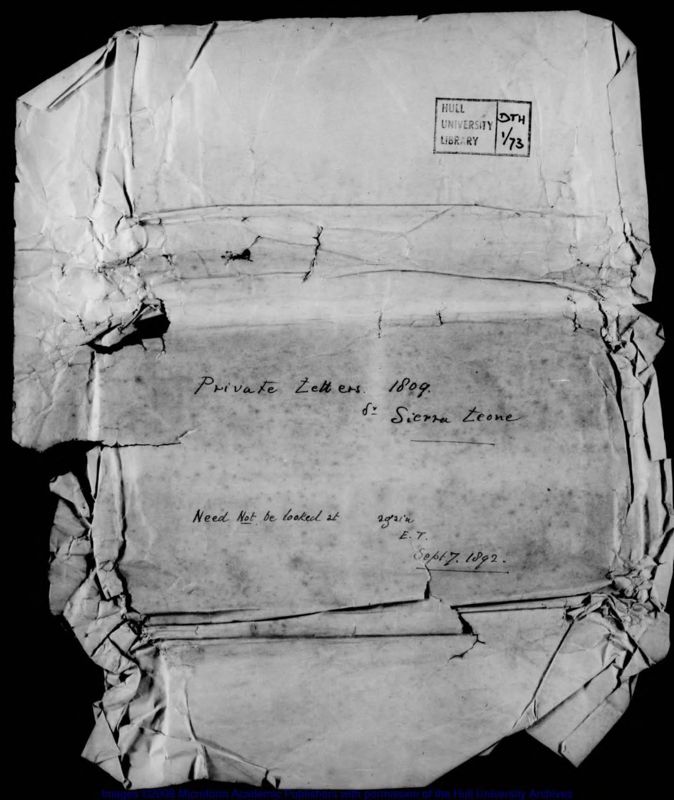 HULL
UNIVERSITY
LIBRARY
DTH
1/73
Private Letters. 1809.
& Sierra Leone
Need Not be looked at again
E. T.
Sept 7. 1892.
Images ©2008 Microform Academic Publishers with permission of the Hull University Archives